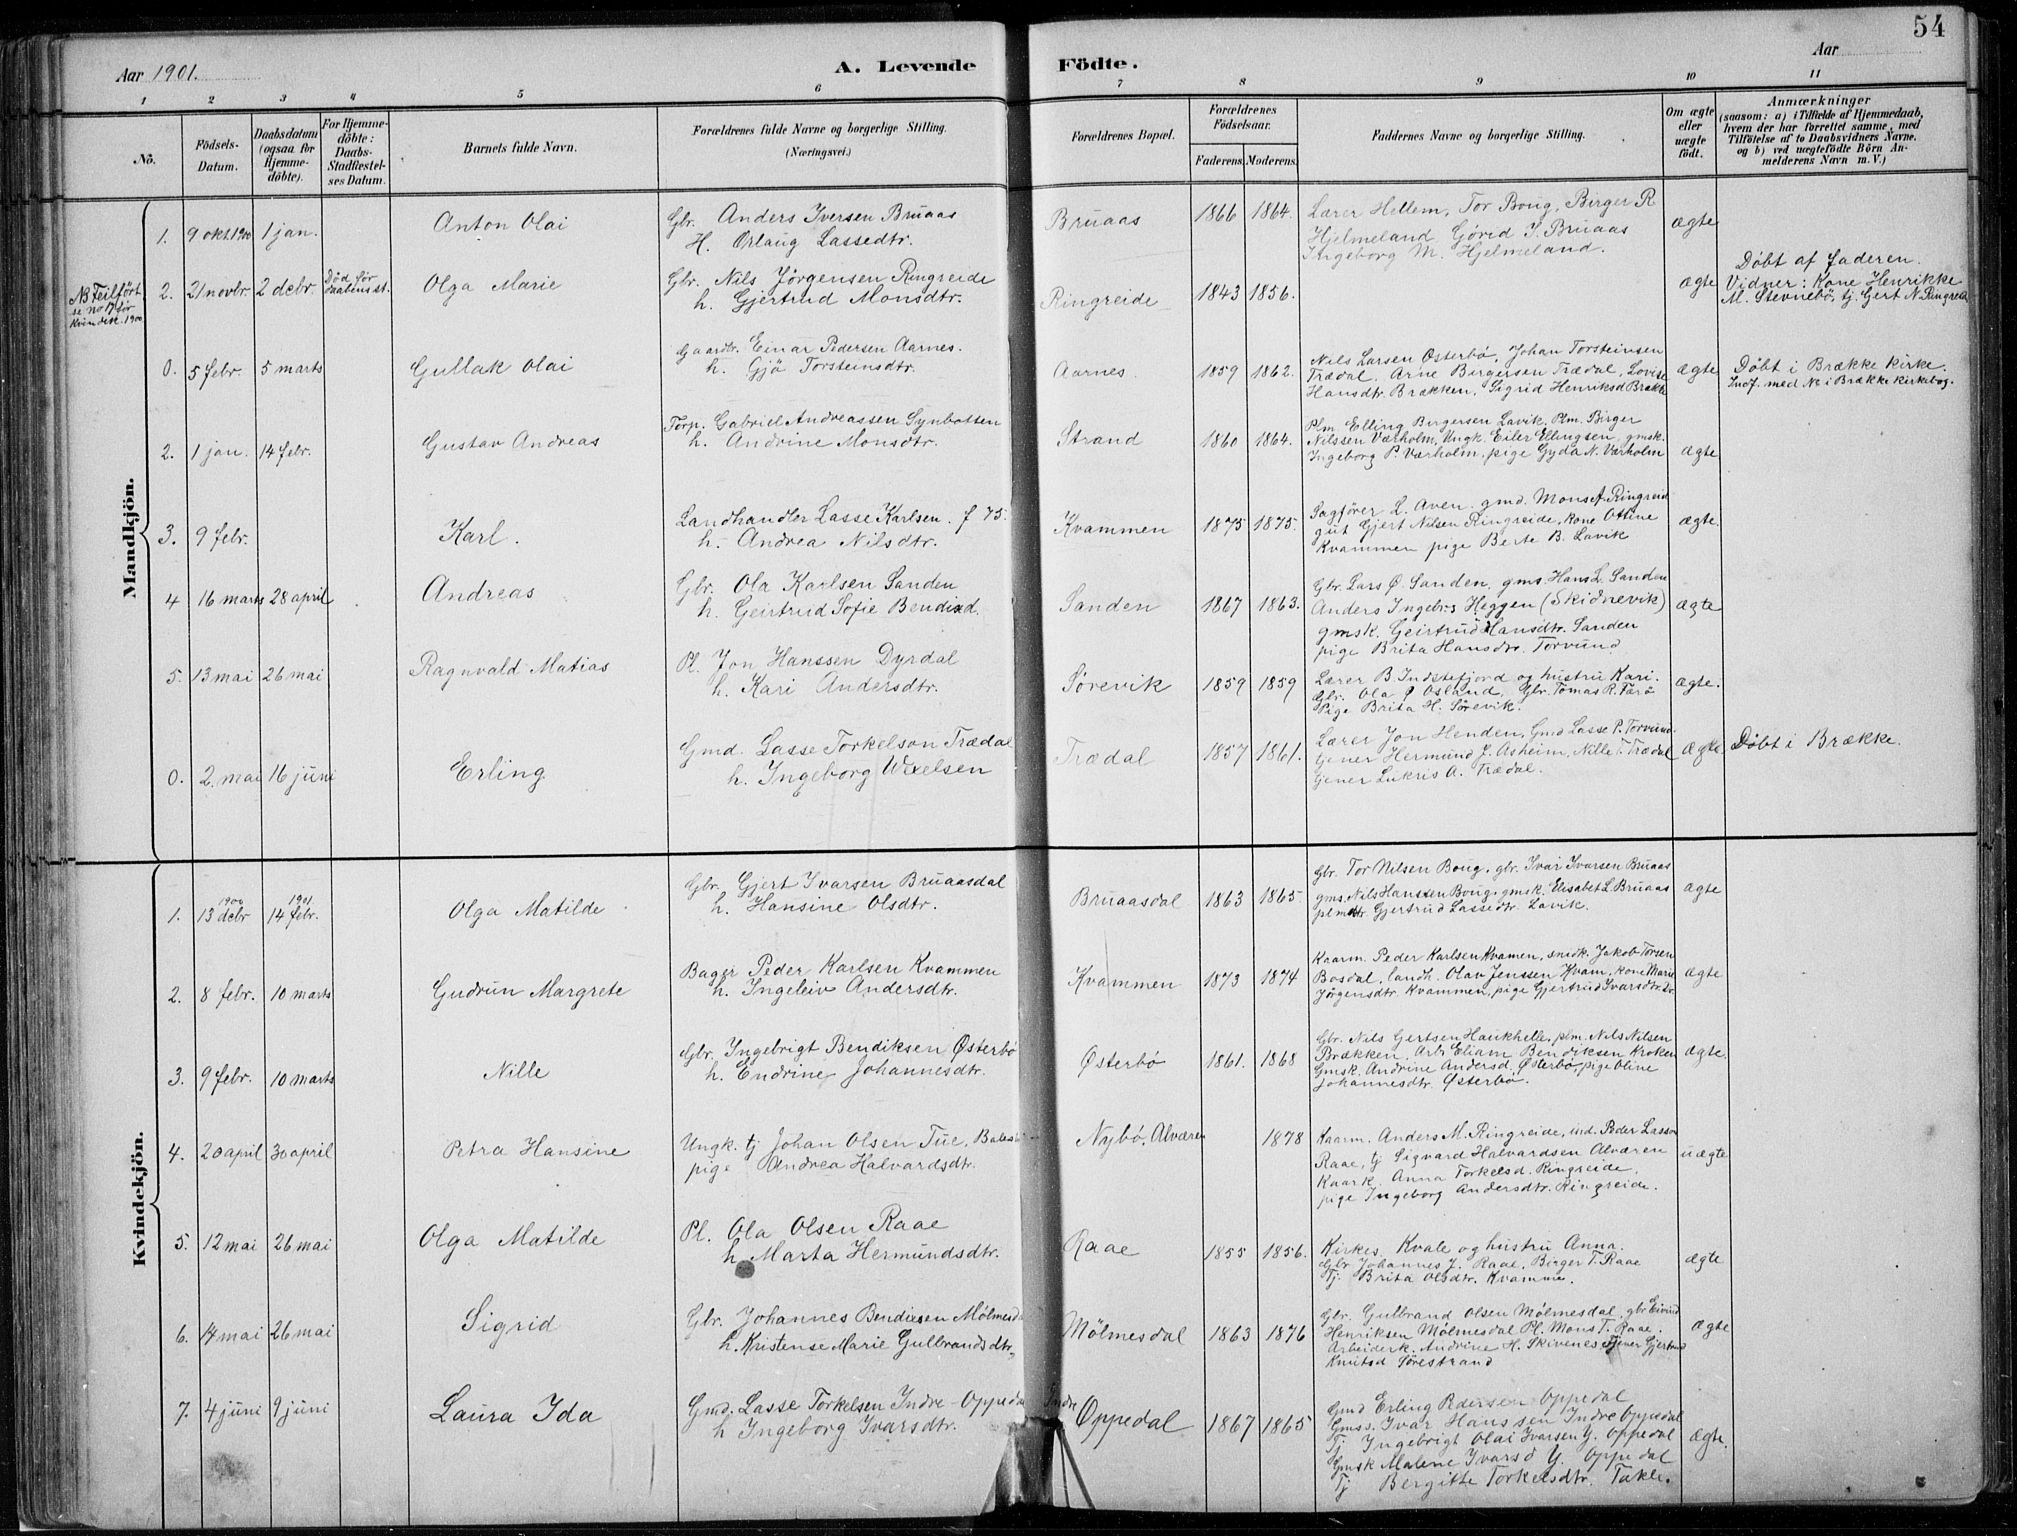 54
Aar 1901. A. Levende Födte. Aar
1 2 3 4 5 6 7 8 9 10 11
No. Födsels-Datum. Daabsdatum (ogsaa for Hjemmedöbte). For Hjemmedöbte: Daabs-Stadfestelses Datum. Barnets fulde Navn. Forældrenes fulde Navne og borgerlige Stilling. (Næringsvei.) Forældrenes Bopæl. Forældrenes Födselsaar. Faderens. Moderens. Faddernes Navne og borgerlige Stilling. Om ægte eller uægte födt. Anmærkninger (saasom: a) i Tilfælde af Hjemmedaab, hvem der har forrettet samme, med Tilföielse af to Daabsvidners Navne. og b) ved uægtefödte Börn Anmelderens Navn m. V.)
Mandkjön.
1. 9 okt. 1900 1 jan. Anton Olai
Gbr. Anders Iversen Bruaas
H. Orlaug Lassedtr.
Bruaas 1866 1864.
Lærer Hellem, Tor Boug, Birger R
Hjelmeland Gjörid I. Bruaas
Ingeborg M. Hjelmeland.
ægte
NB Feilfört
se no 17 for
kvindek. 1900
2. 21 novbr. 2 debr. Död för daabens st. Olga Marie
Gbr. Nils Jörgensen Ringreide
h. Gjertrud Monsdtr.
Ringreide 1843 1856.
ægte
Döbt af faderen.
Vidner: Kone Henrikke
M. Stevnebö, tj. Gert N. Ringreid
0. 5 febr. 5 marts Gullak Olai
Gaardbr. Einar Pedersen Aarnes.
h. Gjö Torsteinsdtr.
Aarnes. 1859 1862.
Nils Larsen Osterbö, Johan Torsteinsen
Trædal. Arne Birgersen Trædal, Lovise
Hansdtr. Brækken, Sigrid Henriksd Brække
ægte
Döbt i Brække kirke.
Indf. med No i Brække kirkebog.
2. 1 jan. 14 febr. Gustav Andreas
Torp. Gabriel Andreassen Synbotten
h. Andrine Monsdtr.
Strand 1860 1864.
Plm. Elling Birgersen Lavik, Plm. Birger
Nilssen Værholm, Ungk. Eiler Ellingsen, gmsk.
Ingeborg P. Værholm, pige Gyda N. Værholm
ægte
3. 9 febr. Karl.
Landhandler Lasse Karlsen. f 75.
h. Andrea Nilsdtr.
Kvammen 1875 1875.
Sagförer L. Aven. gmd. Mons A Ringreid
gut Gjert Nilsen Ringreide, kone Ottine
Kvammen pige Berte B. Lavik
ægte
4 16 marts 28 april Andreas
Gbr. Ola Karlsen Sanden
h. Geirtrud Sofie Bendixd.
Sanden 1867 1863.
Gbr. Lars Ø. Sanden, gms. Hans L. Sanden
Anders Ingebr.s Heggen (Skidnevik)
gmsk. Geirtrud Hansdtr. Sanden
pige Brita Hansdtr. Torvund
ægte
5. 13 mai 26 mai Ragnvald Matias
Pl. Jon Hanssen Dyrdal
h. Kari Andersdtr.
Sørevik 1859 1859
Lærer B. Indstefjord og hustru Kari.
Gbr. Ola Ø Osland, Gbr. Tomas R. Farø
Pige Brita H. Sørevik.
ægte.
0. 2. mai 16 juni Erling
Gmd. Lasse Torkelson Trædal
h. Ingeborg Wexelsen
Trædal 1857 1861.
Lærer Jon Henden, Gmd Lasse P. Torvund
tjener Hermund J. Asheim, Nille T. Trædal
tjener Lukris A. Trædal.
ægte
Døbt i Brække.
Kvindekjön.
1. 1900 13 debr 1901 14 febr. Olga Matilde
Gbr. Gjert Ivarsen Bruaasdal
h. Hansine Olsdtr.
Bruaasdal 1863 1865.
Gbr. Tor Nilsen Boug, gbr. Ivar Ivarsen Bruaas
gms. Nils Hanssen Boug, gmsk. Elisabet L Bruaas
plmdtr. Gjertrud Lassedtr. Lavik.
ægte
2. 8 febr. 10 marts Gudrun Margrete
Bager Peder Karlsen Kvammen
h. Ingeleiv Andersdtr.
Kvammen 1873 1874
Kaarm. Peder Karlsen Kvamen, snidk. Jakob Torsen
Bosdal, landh. Olav Jenssen Kvam, kone Marie
Jörgensdtr. Kvammen, pige Gjertrud Ivarsdtr.
ægte
3. 9 febr. 10 marts Nille
Gbr. Ingebrigt Bendiksen Østerbø
h. Endrine Johannesdtr.
Østerbø 1861. 1868
Gbr. Nils Gertsen Haukhelle, plm. Nils Nilsen
Brækken, Arb. Eliam Bendiksen Kroken
Gmsk. Andrine Andersd. Østerbø, pige Oline
Johannesdtr. Østerbø.
ægte.
4. 20 april 30 april Petra Hansine
Ungk. tj Johan Olsen Tue, Balest
pige Andrea Halvardsdtr.
Nybø, Alværen 1878
Kaarm. Anders M. Ringreide, ind. Peder Lasson
Raae, tj Sigvard Halvardsen Alværen
Kaark. Anna Torkelsd. Ringreide.
pige Ingeborg Andersdtr. Ringreide.
uægte
5. 12 mai 26 mai Olga Matilde
Pl. Ola Olsen Raae
h Marta Hermundsdtr.
Raae 1855 1856.
Kirkes. Kvale og hustru Anna.
Gbr Johannes J. Raae, Birger T. Raae
Tj. Brita Olsdtr. Kvamme.
ægte
6. 14 mai 26 mai Sigrid
Gbr. Johannes Bendixen Mølmesd
h. Kristense Marie Gulbrandsdtr.
Mølmesdal 1863 1876
Gbr. Gulbrand Olsen Mølmesdal, gbr Eivind
Henriksen Mølmesdal Pl. Mons T. Raae.
Arbeiderk. Andrine H. Skivenes Tjener Gjertrud
Knutsd Sørestrand
ægte
7. 4 juni 9 juni Laura Ida
Gmd. Lasse Torkelsen Indre Oppedal
h Ingeborg Ivarsdtr.
Indre Oppedal 1867 1865
Gmd Erling Oppedal
Gmss. Ivar Hanssen Indre Oppedal
Tj Ingebrigt Olai Ivarsen Y. Oppedal
Gmsk Malene Ivarsd Y. Oppedal
Tj Bergitte Torkelsdtr. Takle.
ægte.